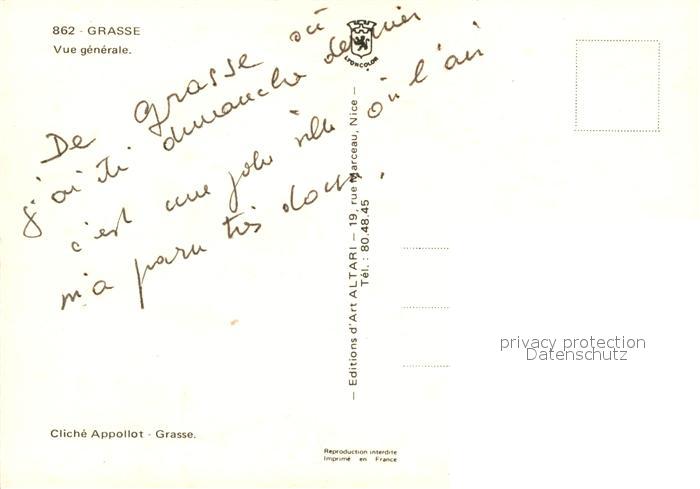 862 - GRASSE
Vue générale.
De Grasse où
j'ai été dimanche dernier
c'est une jolie ville où l'air
m'a paru très doux.
LYONCOLOR
— Editions d'Art ALTARI — 19, rue Marceau, Nice —
Tél. : 80.48.45
privacy protection
Datenschutz
Cliché Appollot - Grasse.
Reproduction interdite
Imprimé en France